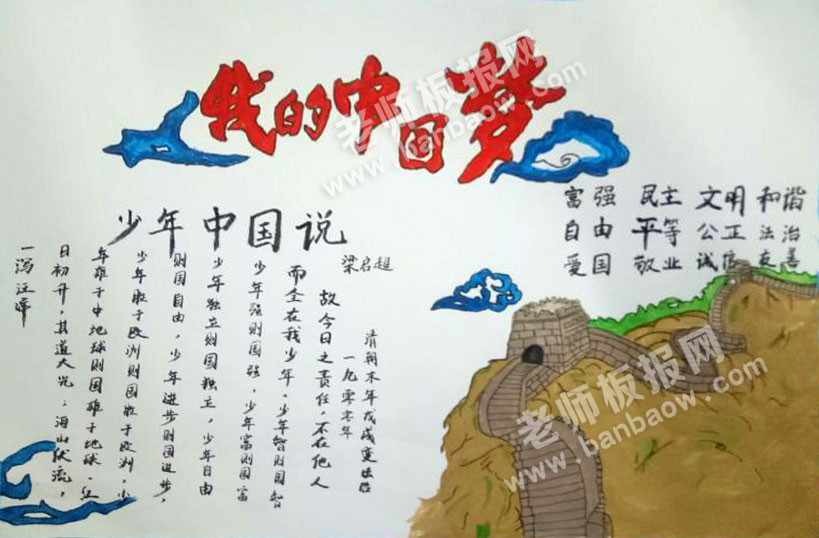 我的中国梦
富强 民主 文明 和谐
自由 平等 公正 法治
爱国 敬业 诚信 友善
少年中国说
梁启超
清朝末年戊戌变法后
一九零零年
故今日之责任,不在他人
而全在我少年。少年智则国智
少年强则国强,少年富则国富
少年独立则国独立,少年自由
则国自由,少年进步则国进步,
少年胜于欧洲则国胜于欧洲,少
年雄于中地球则国雄于地球。红
日初升,其道大光:海山伏流,
一泻汪洋
老师板报网
www.banbaow.com
老师板报网
www.banbaow.com